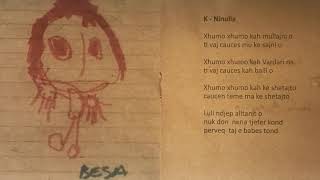 BESA
K - Ninulla
Xhumo xhumo kah mullajni o
ti vaj cauces mu ke sajni o
Xhumo xhumo kah Vardari ni
ti vaj cauces kah balli o
Xhumo xhumo kah ke shetajto
caucen teme ma ke shetajto
Luli ndjep alltanit o
nuk don nena tjeter kond
perveq taj e babes tond